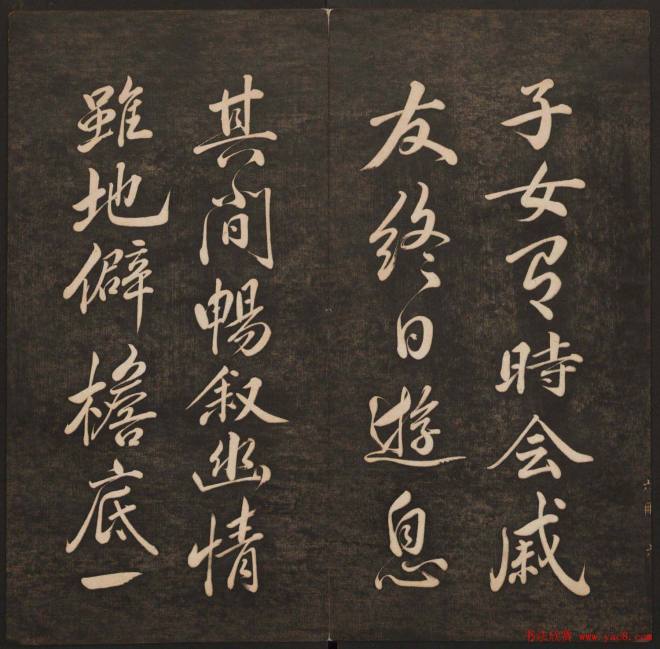 子女有時会戚
友終日遊息
其間暢叙幽情
雖地僻檐底一
书法欣赏 www.yac8.com